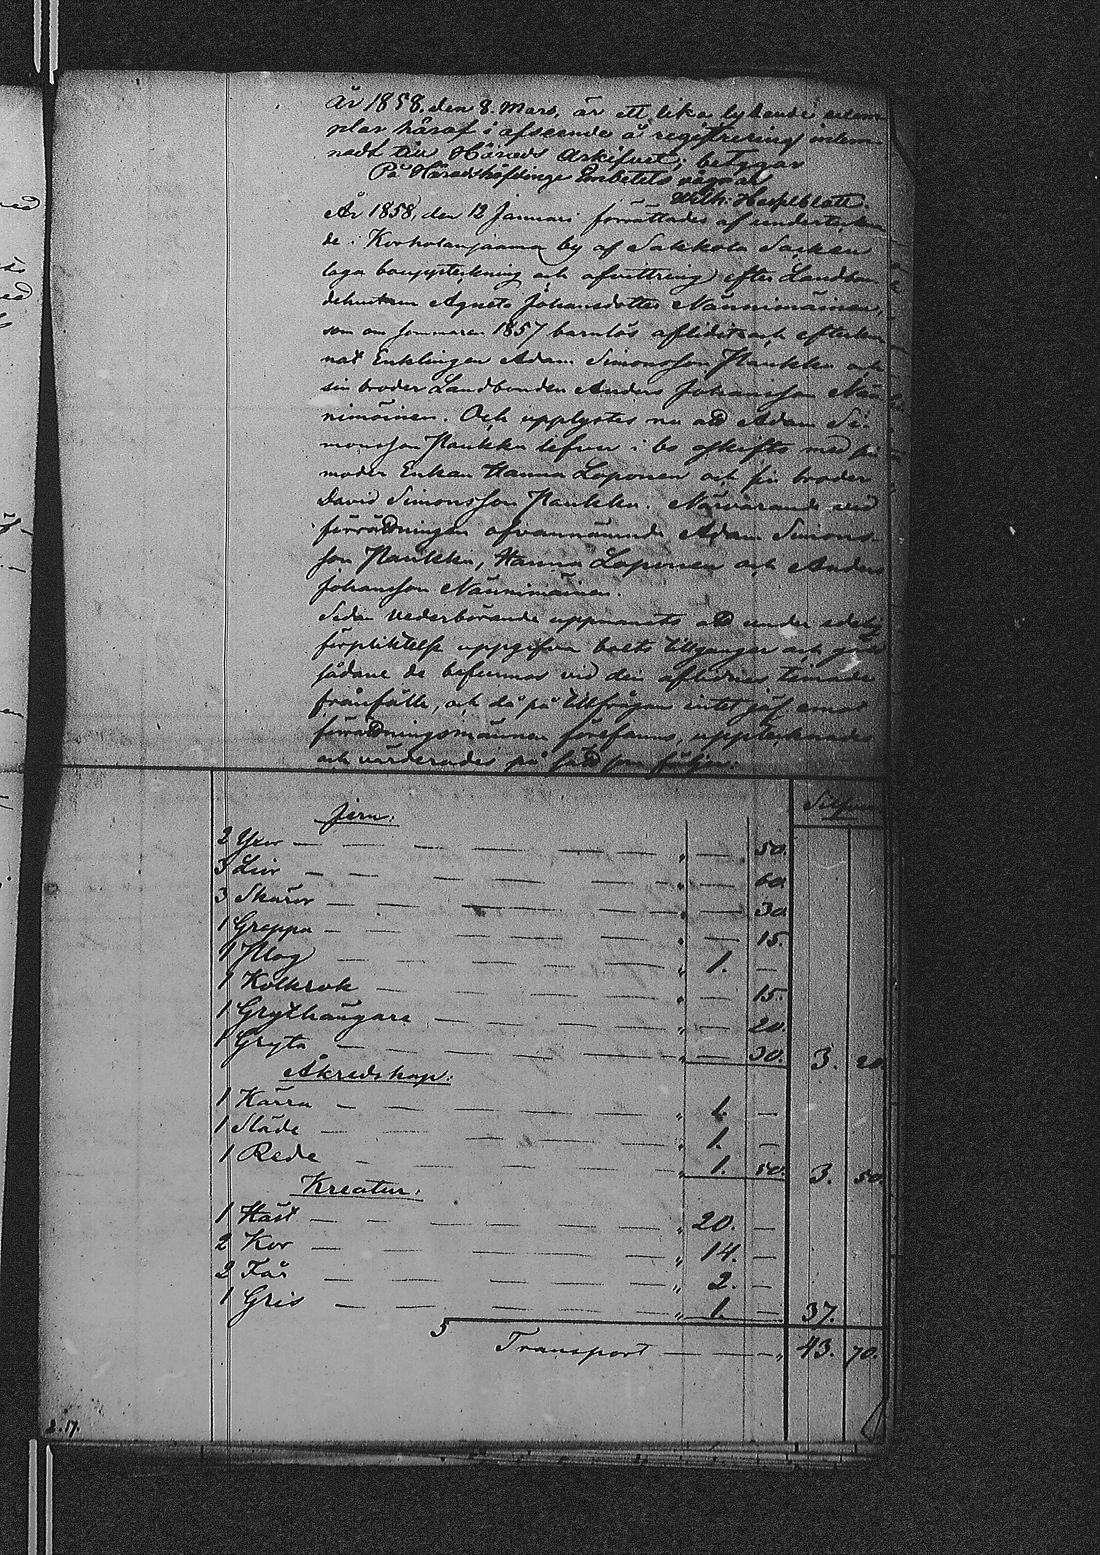 År 1858, den 8. Mars, är ett lika lydande exem-
plar häraf i afseende å registrering inlem-
nadt till Härads Arkifvet; betygar
På Häradshöfdinge Embetets vägnar
Wilh: Haselblatt.
År 1858, den 12 Januari förrättades af underteckna-
de i Korholanjaama by af Sakkola Socken
laga bouppteckning och afvittring efter Landbon-
dehustrun Agneta Johansdotter Nännimäinen,
som om sommaren 1857 barnlös aflidit och efterlem-
nat Enklingen Adam Simonsson Paukku och
sin broder Landbonden Anders Johansson Nän-
nimäinen. Och upplystes nu att Adam Si-
monsson Paukku lefver i bo oskifto med sin
moder Enkan Hanna Loponen och sin broder
David Simonsson Paukku. Närvarande vid
förrättningen ofvannämnde Adam Simons-
son Paukku, Hanna Loponen och Anders
Johansson Nännimäinen.
Sedan vederbörande uppmanats att under edelig
förpliktelse uppgifva boets tillgånger och gäld
sådane de befunnos vid den aflidnes timade
frånfälle, och då på tillfrågan intet jäf emot
förrättningsmännen förefanns, upptecknades
och värderades på sätt som följer:
Silfver
Jern:
2 Yxor — — " — 50.
3 Liar — — " — 60.
3 Skäror — — " — 30.
1 Greppa — — " — 15.
1 Plog — — " 1. —
1 Kolkrok — — " — 15.
1 Grythängare — — " — 20.
1 Gryta — — " — 30. 3. 20.
Åkredskap:
1 Kärra — — " 1. —
1 Släde — — " 1. —
1 Rede — " 1. 50. 3. 50.
Kreatur:
1 Häst — — " 20. —
2 Kor — — " 14. —
2 Får — — " 2. —
1 Gris — — " 1. — 37.
Transport — — — " 43. 70.
2.17.